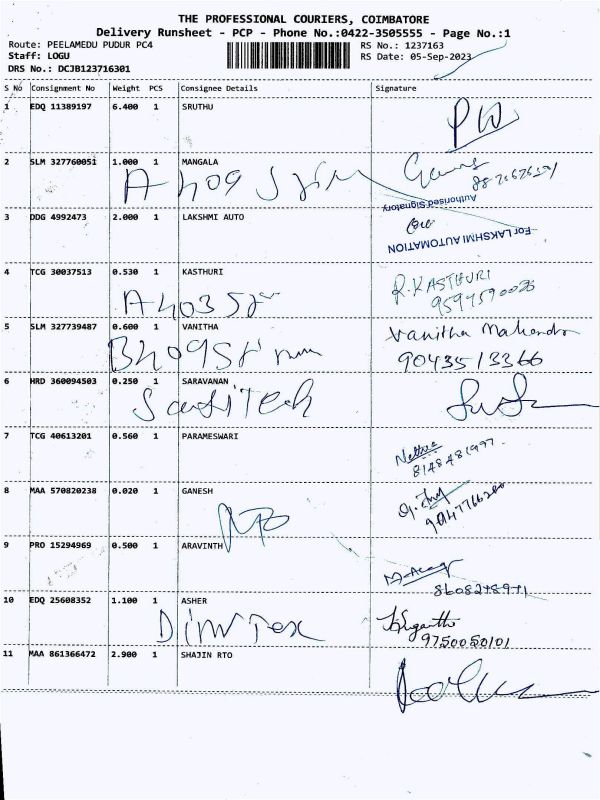 THE PROFESSIONAL COURIERS, COIMBATORE
Delivery Runsheet - PCP - Phone No.:0422-3505555 - Page No.:1
Route: PEELAMEDU PUDUR PC4 RS No.: 1237163
Staff: LOGU RS Date: 05-Sep-2023
DRS No.: DCJB123716301
S No Consignment No Weight PCS Consignee Details Signature
1 EDQ 11389197 6.400 1 SRUTHU
2 SLM 327760051 1.000 1 MANGALA
A 409
Authorised Signatory
3 DDG 4992473 2.000 1 LAKSHMI AUTO
For LAKSHMI AUTOMATION
4 TCG 30037513 0.530 1 KASTHURI R.KASTHURI
A 403
5 SLM 327739487 0.600 1 VANITHA Vanitha Mahendra
B 409 9043513366
6 HRD 360094503 0.250 1 SARAVANAN
7 TCG 40613201 0.560 1 PARAMESWARI
8148481997
8 MAA 570820238 0.020 1 GANESH
9 PRO 15294969 0.500 1 ARAVINTH
10 EDQ 25608352 1.100 1 ASHER
9750050101
11 MAA 861366472 2.900 1 SHAJIN RTO